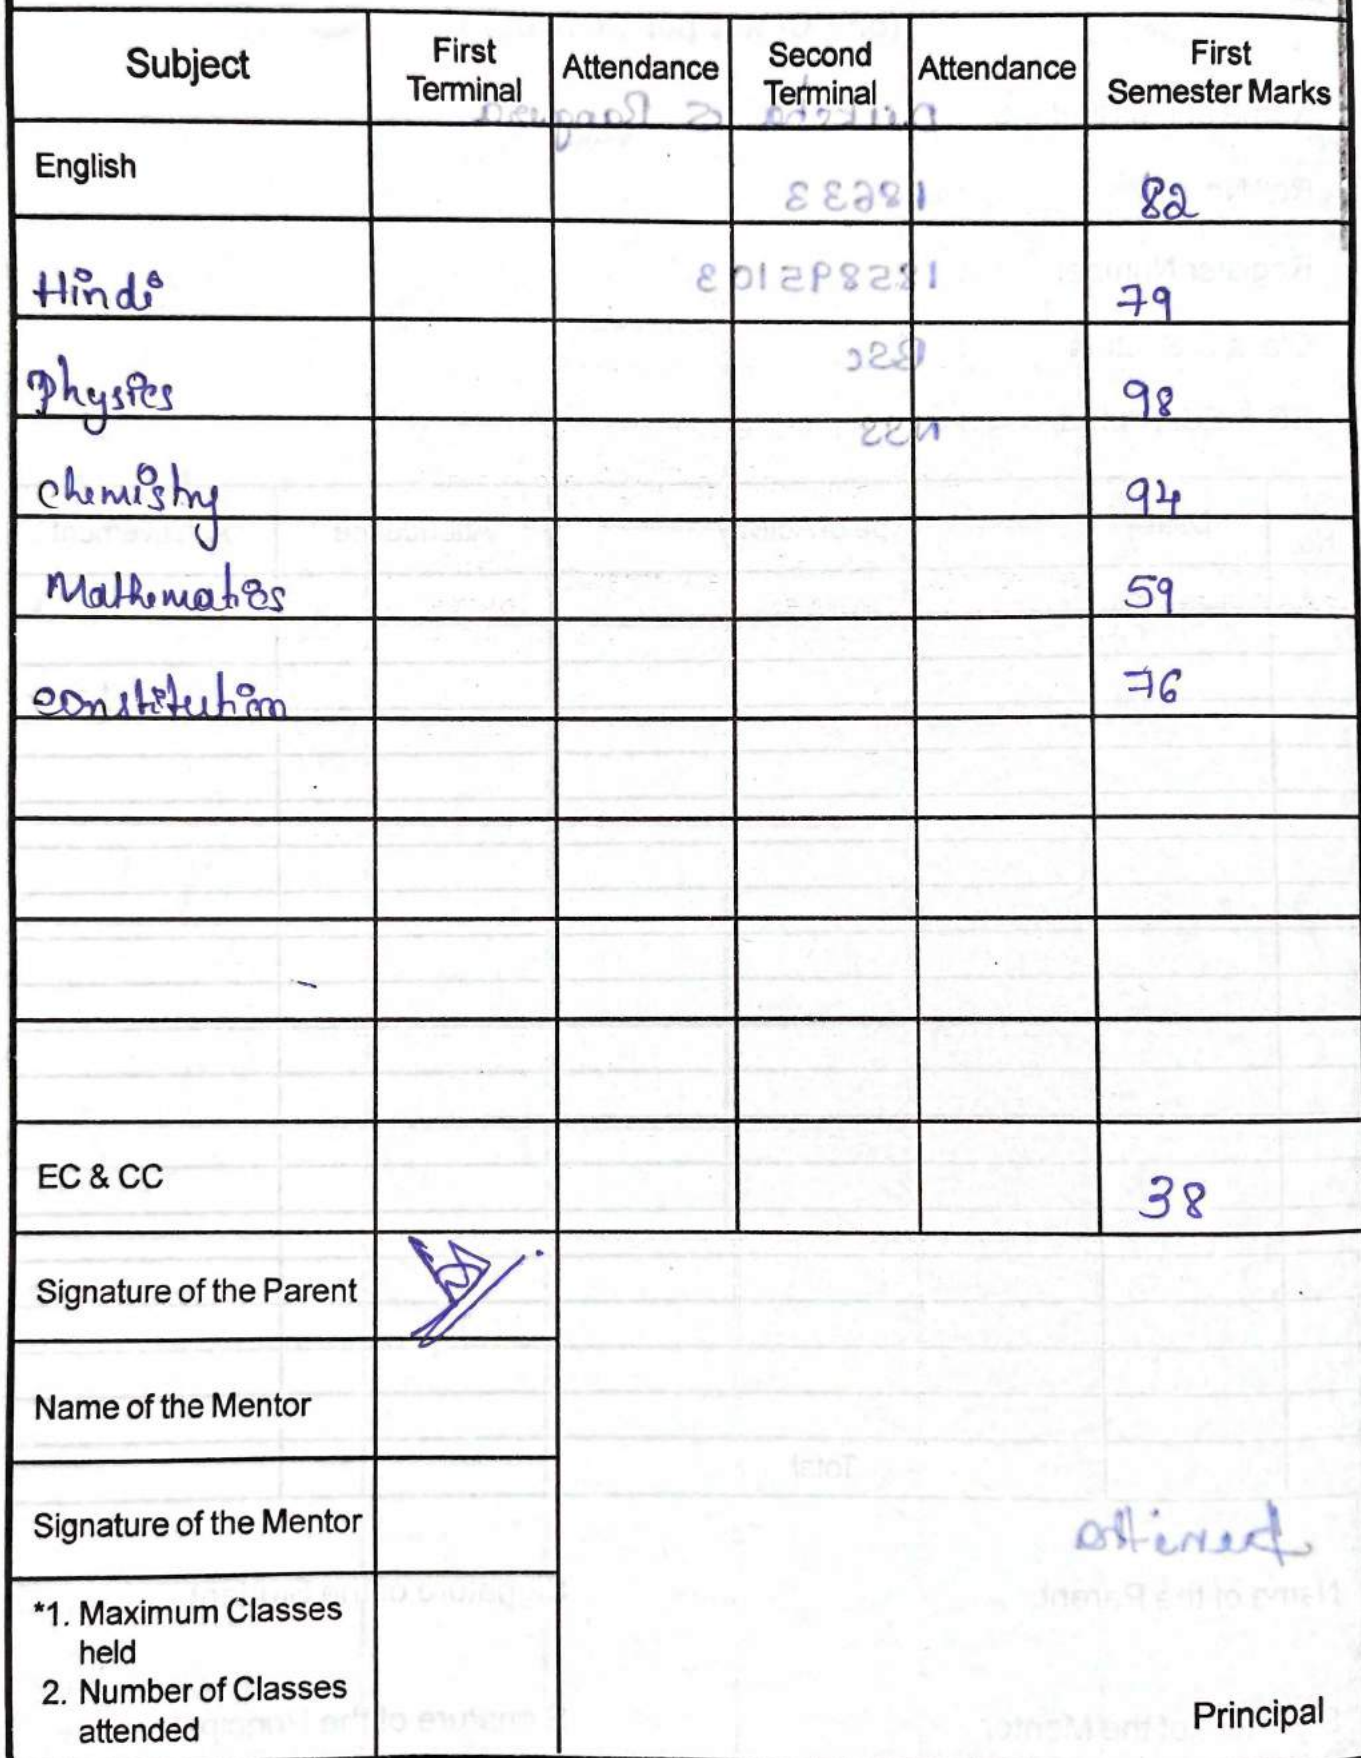 Subject First Terminal Attendance Second Terminal Attendance First Semester Marks
English 82
Hindi 79
Physics 98
Chemistry 94
Mathematics 59
Constitution 76
EC & CC 38
Signature of the Parent
Name of the Mentor
Signature of the Mentor
*1. Maximum Classes
held
2. Number of Classes
attended
Principal